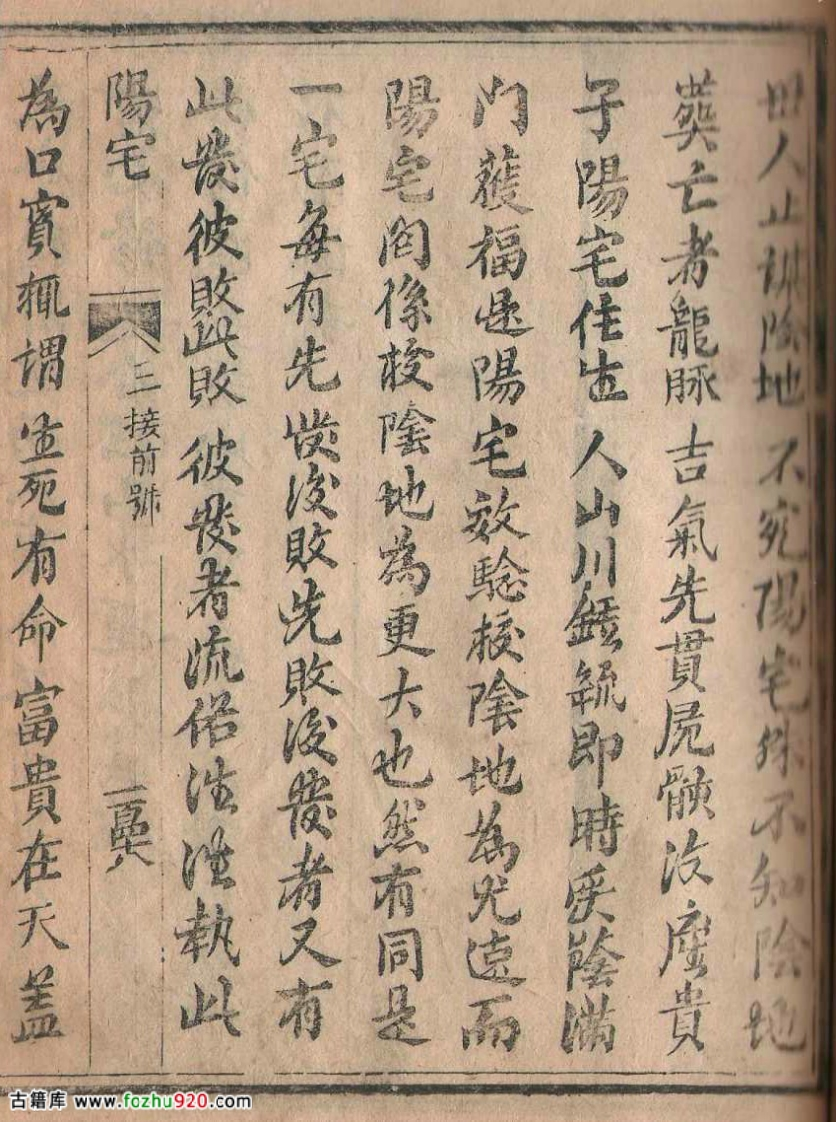 世人止識陰地不究陽宅殊不知陰地
葬亡者龍脉吉氣先貫屍骸沒産貴
子陽宅住生人山川鍾毓即時受蔭滿
门獲福是陽宅效驗校陰地為尤速而
陽宅関係校陰地為更大也然有同是
一宅每有先發後敗先敗後發者又有
此發彼敗此敗彼發者流俗徃徃執此
陽宅
三接前號
為口實輒谓生死有命富貴在天盖
古籍库 www.fozhu920.com